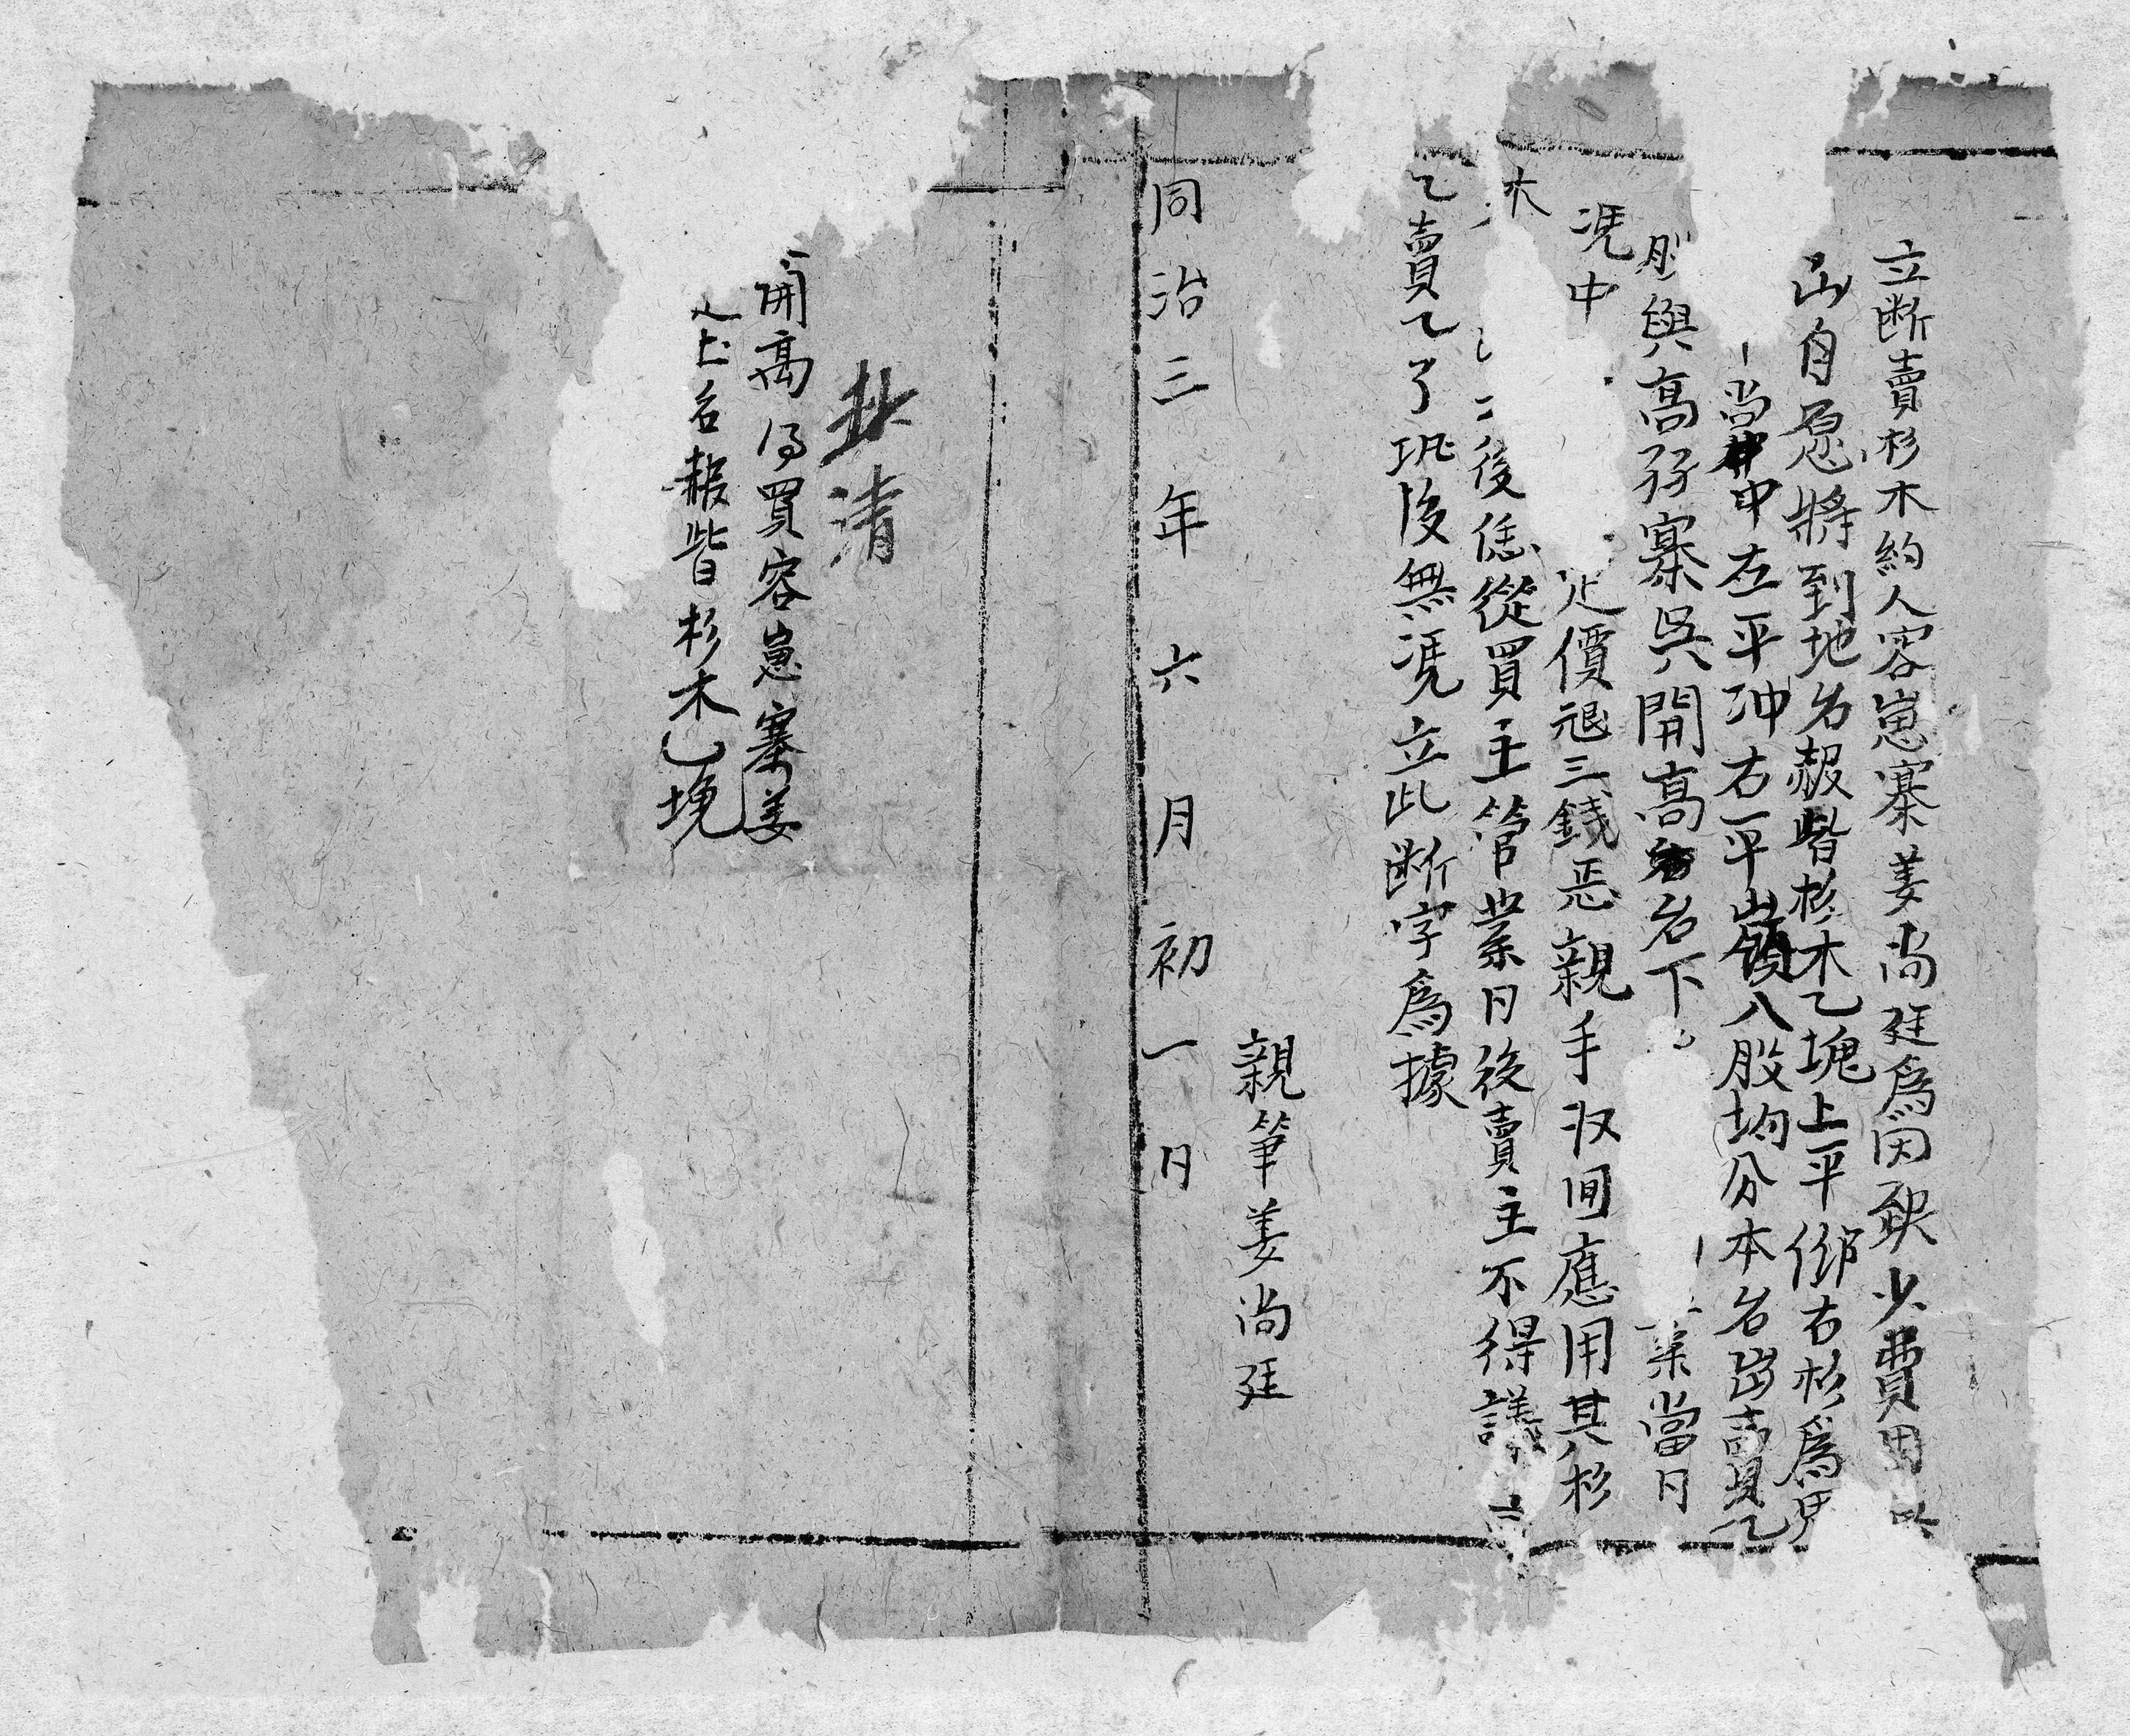 立断賣杉木約人容崽寨姜尚廷為因缺少費用
山自愿將到地名赧砦杉木乙塊上平 右杉為界
尚中左平沖右平嶺八股均分本名出賣乙
與高孖寨吳開高名下 業當日
凴中 定價艮三錢 親手收回應用其杉
木 後恁從買主管業日後賣主不得議
乙賣乙了恐後無凴立此断字為據
親筆姜尚廷
同治三年六月初一日
批清
開高得買容崽寨姜
土名赧砦杉木乙塊